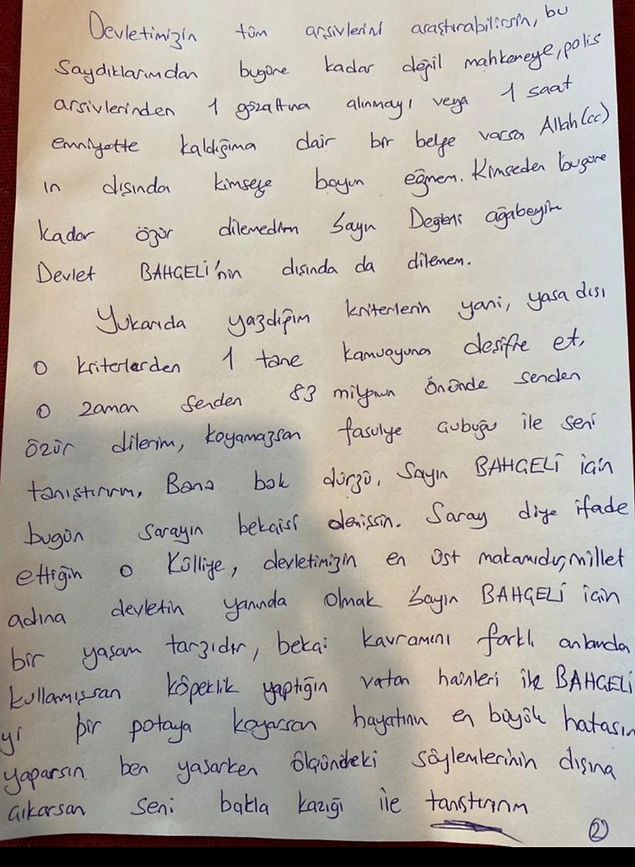 Devletimizin tüm arşivlerini araştırabilirsin, bu
saydıklarımdan bugüne kadar değil mahkemeye, polis
arşivlerinden 1 gözaltına alınmayı veya 1 saat
emniyette kaldığıma dair bir belge varsa Allah (cc)
ın dışında kimseye boyun eğmem. Kimseden bugüne
kadar özür dilemedim Sayın Değerli ağabeyim
Devlet BAHÇELİ'nin dışında da dilemem.
Yukarıda yazdığım kriterlerin yani, yasa dışı
o kriterlerden 1 tane kamuoyuna deşifre et,
o zaman senden 83 milyonun önünde senden
özür dilerim, koyamazsan fasulye çubuğu ile seni
tanıştırırım, Bana bak dürzü, Sayın BAHÇELİ için
bugün sarayın bekçisi demişsin. Saray diye ifade
ettiğin o Külliye, devletimizin en üst makamıdır, millet
adına devletin yanında olmak Sayın BAHÇELİ için
bir yaşam tarzıdır, bekçi kavramını farklı anlamda
kullanmışsan köpeklik yaptığın vatan hainleri ile BAHÇELİ
yi bir potaya koyarsan hayatının en büyük hatasın
yaparsın. ben yaşarken ölçündeki söylemlerinin dışına
çıkarsan seni bakla kazığı ile tanıştırırım
2